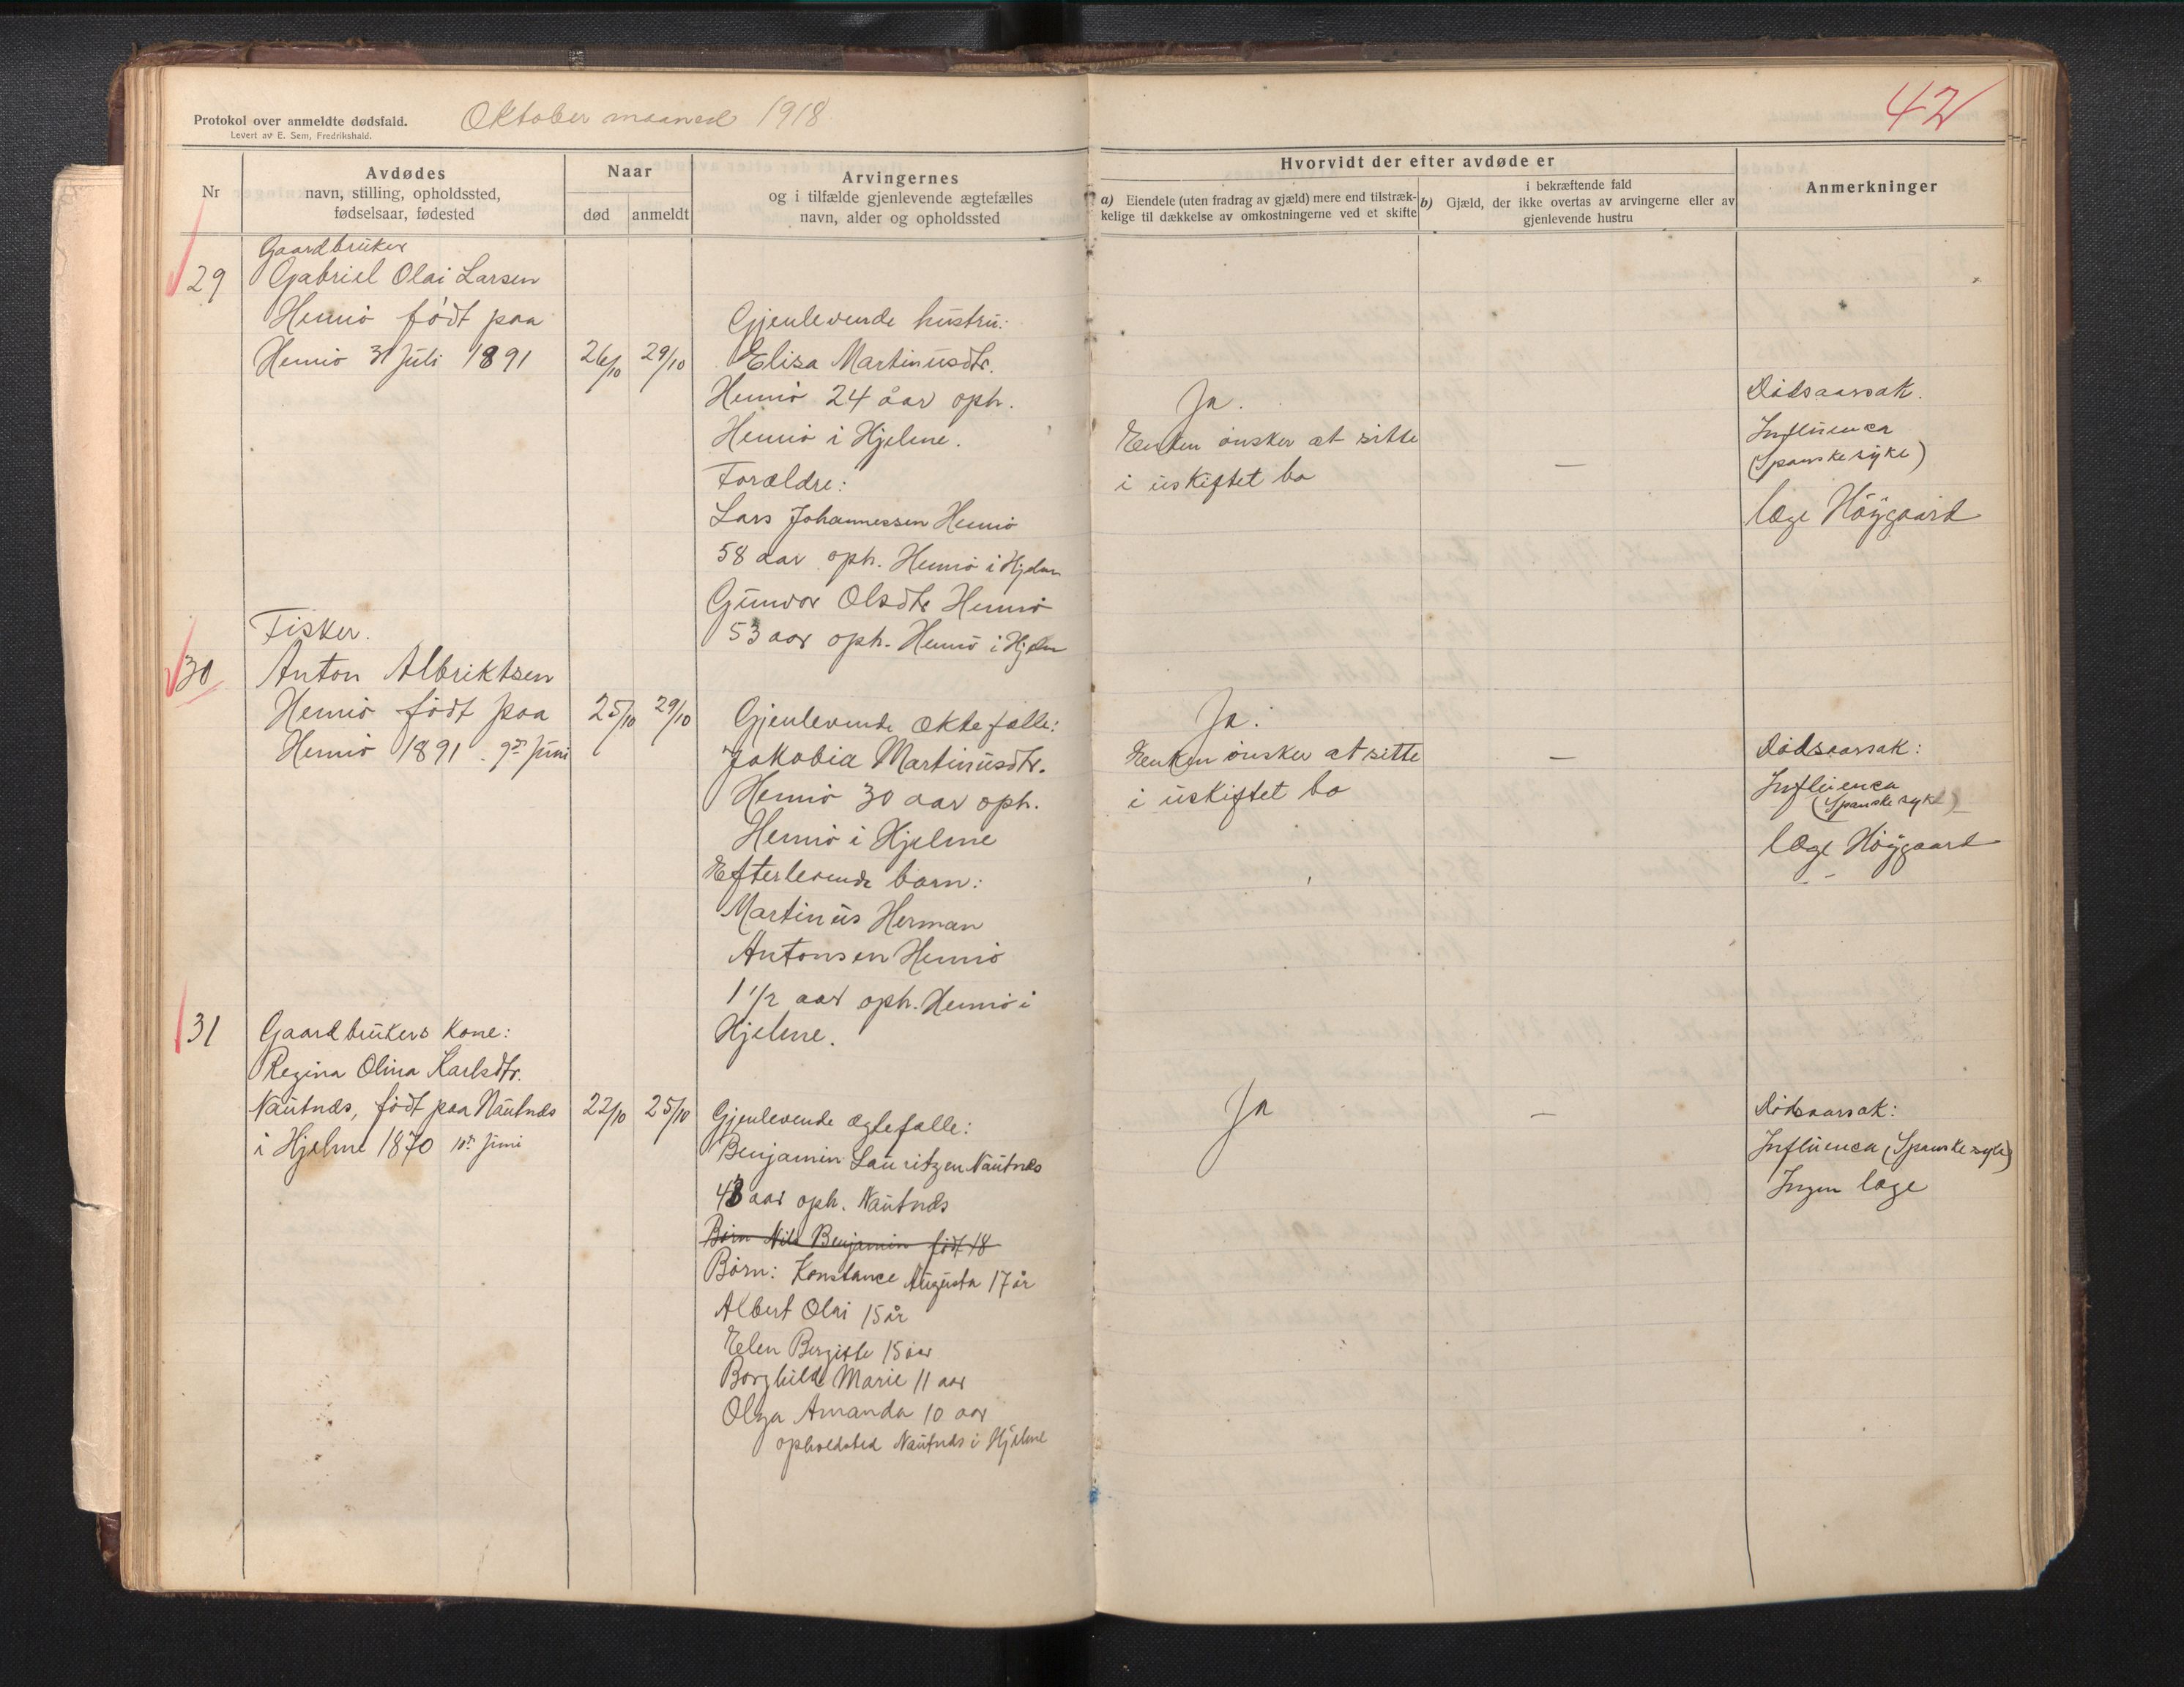 Protokol over anmeldte dødsfald.
Levert av E. Sem, Fredrikshald.
Oktober maaned 1918
42
Nr
Avdødes
navn, stilling, opholdssted,
fødselsaar, fødested
Naar
død
anmeldt
Arvingernes
og i tilfælde gjenlevende ægtefælles
navn, alder og opholdssted
Hvorvidt der efter avdøde er
a) Eiendele (uten fradrag av gjæld) mere end tilstræk-
kelige til dækkelse av omkostningerne ved et skifte
i bekræftende fald
b) Gjæld, der ikke overtas av arvingerne eller av
gjenlevende hustru
Anmerkninger
29
Gaardbruker
Gabriel Olai Larsen
Hernø født paa
Hernø 31 Juli 1891
26/10
29/10
Gjenlevende hustru:
Elisa Martinusdtr.
Hernø 24 åar oph.
Hernø i Hjelme.
Forældre:
Lars Johannessen Hernø
58 aar oph. Hernø i Hjelm
Gunvor Olsdtr Hernø
53 aar oph. Hernø i Hjelm
Ja.
Enken ønsker at sitte
i uskiftet bo
—
Dødsaarsak.
Influenca
(Spanske syke)
læge Höygaard
30
Fisker.
Anton Albriktsen
Hernø født paa
Hernø 1891. 9de Juni
25/10
29/10
Gjenlevende ektefælle:
Jakobia Martinusdtr.
Hernø 30 aar oph.
Hernø i Hjelme
Efterlevende barn:
Martinus Herman
Antonsen Hernø
1 1/2 aar oph. Hernø i
Hjelme.
Ja.
Enken ønsker at sitte
i uskiftet bo
—
Dødsaarsak:
Influenca
(Spanske syke)
læge Höygaard
31
Gaardbrukers kone:
Regina Olina Karlsdtr.
Nautnæs, født paa Nautnæs
i Hjelme 1870 10de Juni
22/10
25/10
Gjenlevende ægtefælle:
Benjamin Lauritzen Nautnæs
43 aar oph. Nautnæs
Børn Nils Benjamin født 18
Børn: Konstance Augusta 17 år
Albert Olai 15 år
Elen Bergitte 15 aar
Borghild Marie 11 aar
Olga Amanda 10 aar
opholdsted Nautnæs i Hjelme
Ja
—
Dødsaarsak:
Influenca (Spanske syke)
Ingen læge